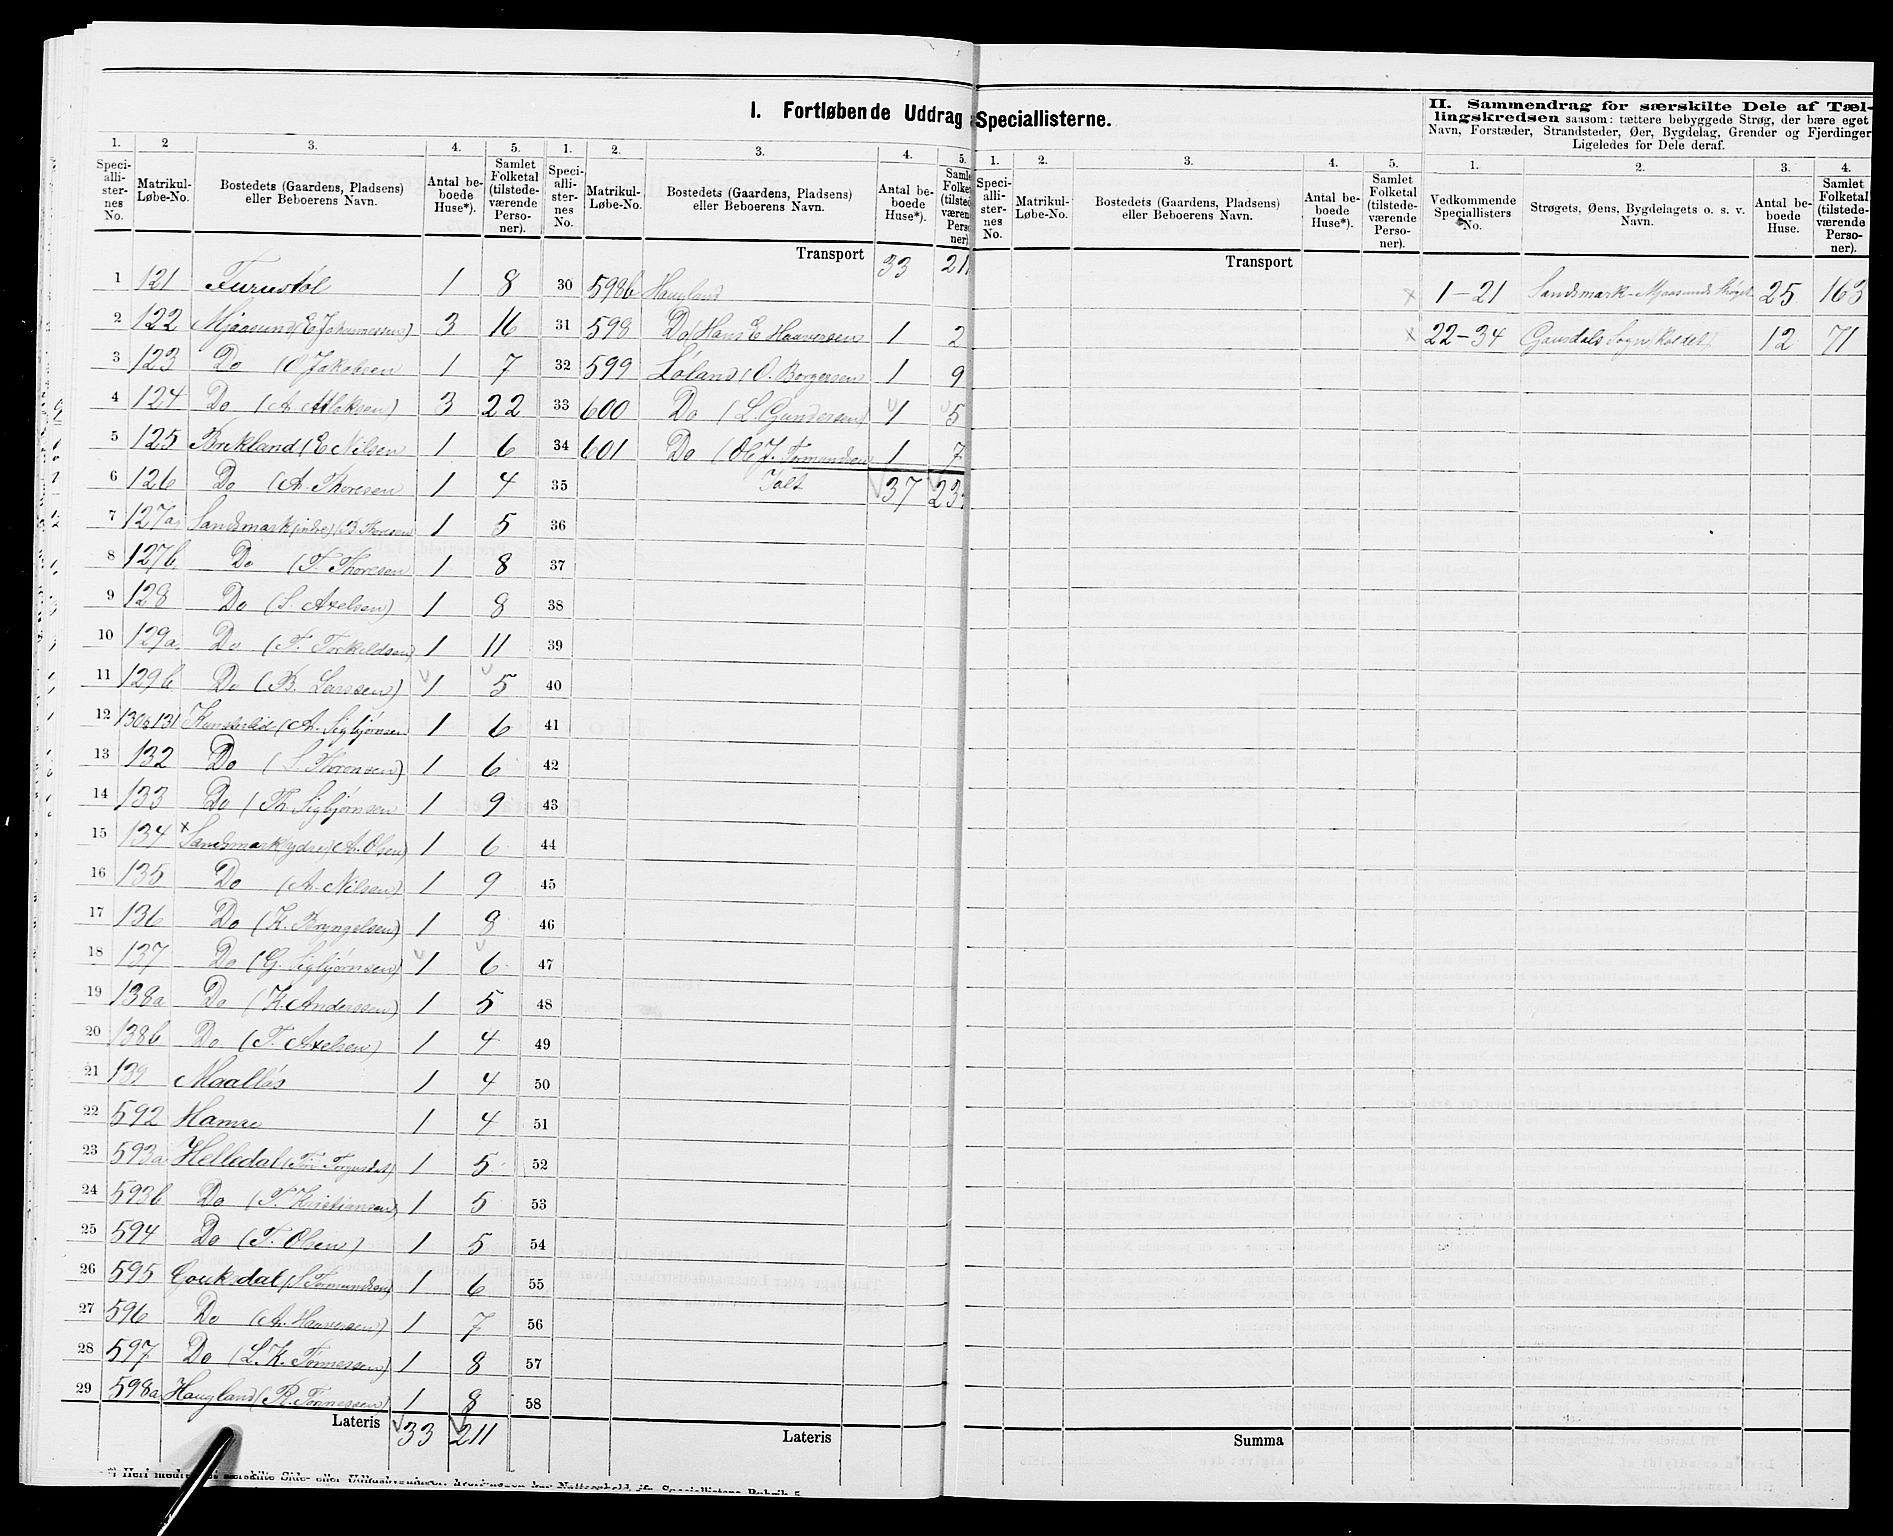 I. Fortløbende Uddrag
Speciallisterne.
II. Sammendrag for særskilte Dele af Tæl-
lingskredsen saasom: tættere bebyggede Strøg, der bære eget
Navn, Forstæder, Strandsteder, Øer, Bygdelag, Grender og Fjerdinger
Ligeledes for Dele deraf.
1. 2 3. 4. 5. 1. 2. 3. 4. 5. 1. 2. 3. 4. 5. 1. 2. 3. 4.
Speci-alli-ster-nes No. Matrikul-Løbe-No. Bostedets (Gaardens, Pladsens) eller Beboerens Navn. Antal be-boede Huse*). Samlet Folketal (tilstede-værende Perso-ner).
Speci-alli-ster-nes No. Matrikul-Løbe-No. Bostedets (Gaardens, Pladsens) eller Beboerens Navn. Antal be-boede Huse*).
Speci-alli-ster-nes No. Matrikul-Løbe-No. Bostedets (Gaardens, Pladsens) eller Beboerens Navn. Antal be-boede Huse*). Samlet Folketal (tilstede-værende Perso-ner).
Vedkommende Speciallisters No. Strøgets, Øens, Bygdelagets o. s. v. Navn. Antal be-boede Huse. Samlet Folketal (tilstede-værende Perso-ner).
1 121 Furustøl 1 8
2 122 Mjaasund (E Johannessen) 3 16
3 123 Do (O Jakobsen 1 7
4 124 Do (A. Atlaksen) 3 22
5 125 Brekland (E Nilsen 1 6
6 126 Do (A. Thoresen 1 4
7 127a Landsmark (indre) (B Thoresen 1 5
8 127b Do (T. Thoresen 1 8
9 128 Do (S. Axelsen) 1 8
10 129a Do (T. Torkeldsen) 1 11
11 129b Do (B. Larssen) 1 5
12 130 & 131 (A. Sigbjørnsen 1 6
13 132 Do (S. Thorensen) 1 6
14 133 Do (Th. Sigbjørnsen 1 9
15 134 x Landsmark ydre (A. Olsen) 1 6
16 135 Do (A. Nilsen) 1 9
17 136 Do (K. Bryngelsen) 1 8
18 137 Do (G. Sigbjørnsen) 1 6
19 138a Do (K. Anderssen) 1 5
20 138b Do (T. Axelsen) 1 4
21 139 Maalløs 1 4
22 592 Hamre 1 4
23 593a Helledal 1 5
24 593b Do (T. Kristiansen) 1 5
25 594 Do (T. Olsen) 1 5
26 595 (S Tormundsen) 1 6
27 596 Do (A. Haaversen) 1 7
28 597 Do (L. K. Tønnessen) 1 8
29 598a Haugland (R. Tønnessen) 1 8
Lateris 33 211
Transport 33 211
30 598b Haugland
31 598 Do (Hans E Haaversen 1 2
32 599 Løland (O. Borgersen 1 9
33 600 Do (L. Gundersen) 1 5
34 601 Do (Ol J. Tormundsen 1 7
35 Ialt 37 23
36
37
38
39
40
41
42
43
44
45
46
47
48
49
50
51
52
53
54
55
56
57
58
Lateris
Transport
Summa
x 1-21 Landsmark-Mjaasunds Strøget 25 163
x 22-34 Sogn kaldet 12 71